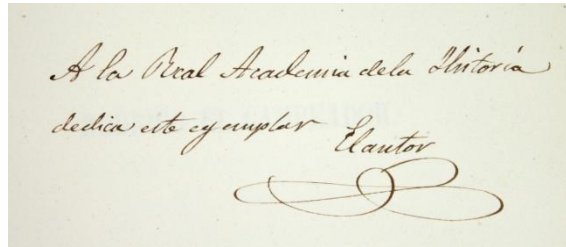 A la Real Academia dela Historia
dedica este egemplar
El autor